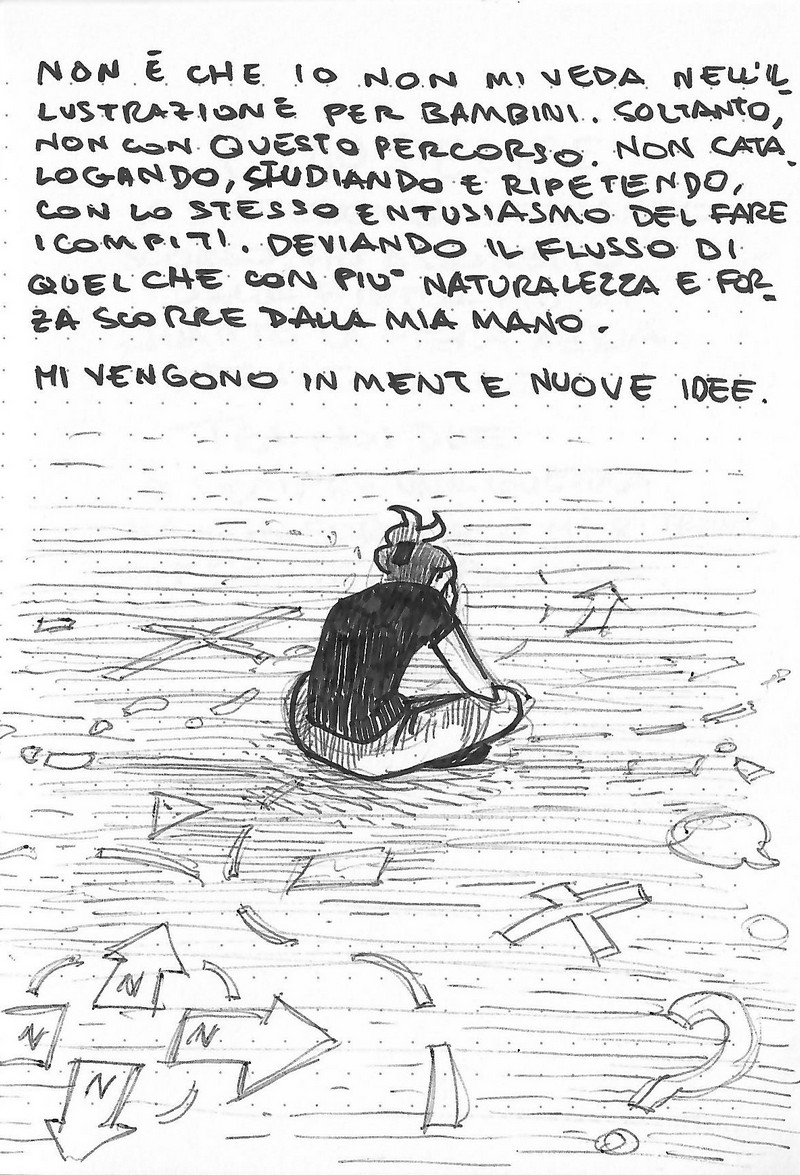 NON È CHE IO NON MI VEDA NELL'IL-
LUSTRAZIONE PER BAMBINI. SOLTANTO,
NON CON QUESTO PERCORSO. NON CATA-
LOGANDO, STUDIANDO E RIPETENDO,
CON LO STESSO ENTUSIASMO DEL FARE
I COMPITI. DEVIANDO IL FLUSSO DI
QUEL CHE CON PIU' NATURALEZZA E FOR-
ZA SCORRE DALLA MIA MANO.
MI VENGONO IN MENTE NUOVE IDEE.
N
N
N
N